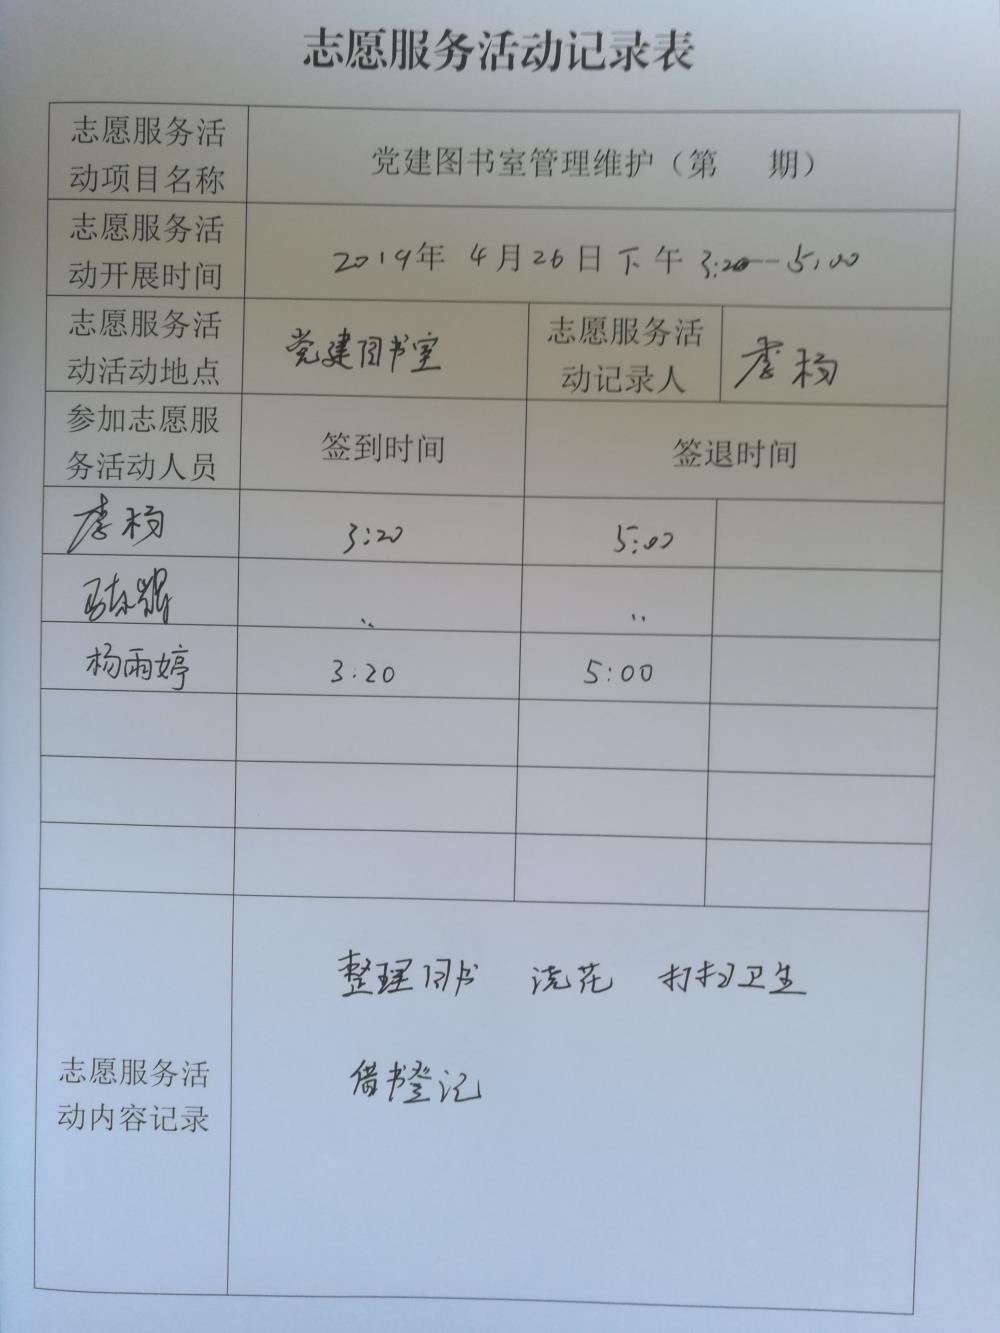 志愿服务活动记录表
志愿服务活
动项目名称
党建图书室管理维护（第　　期）
志愿服务活
动开展时间
2019年 4月26日下午 3:20—5:00
志愿服务活
动活动地点
党建图书室
志愿服务活
动记录人
李杨
参加志愿服
务活动人员
签到时间
签退时间
李杨
3:20
5:00
杨雨婷
3:20
5:00
志愿服务活
动内容记录
整理图书 浇花 打扫卫生
借书登记